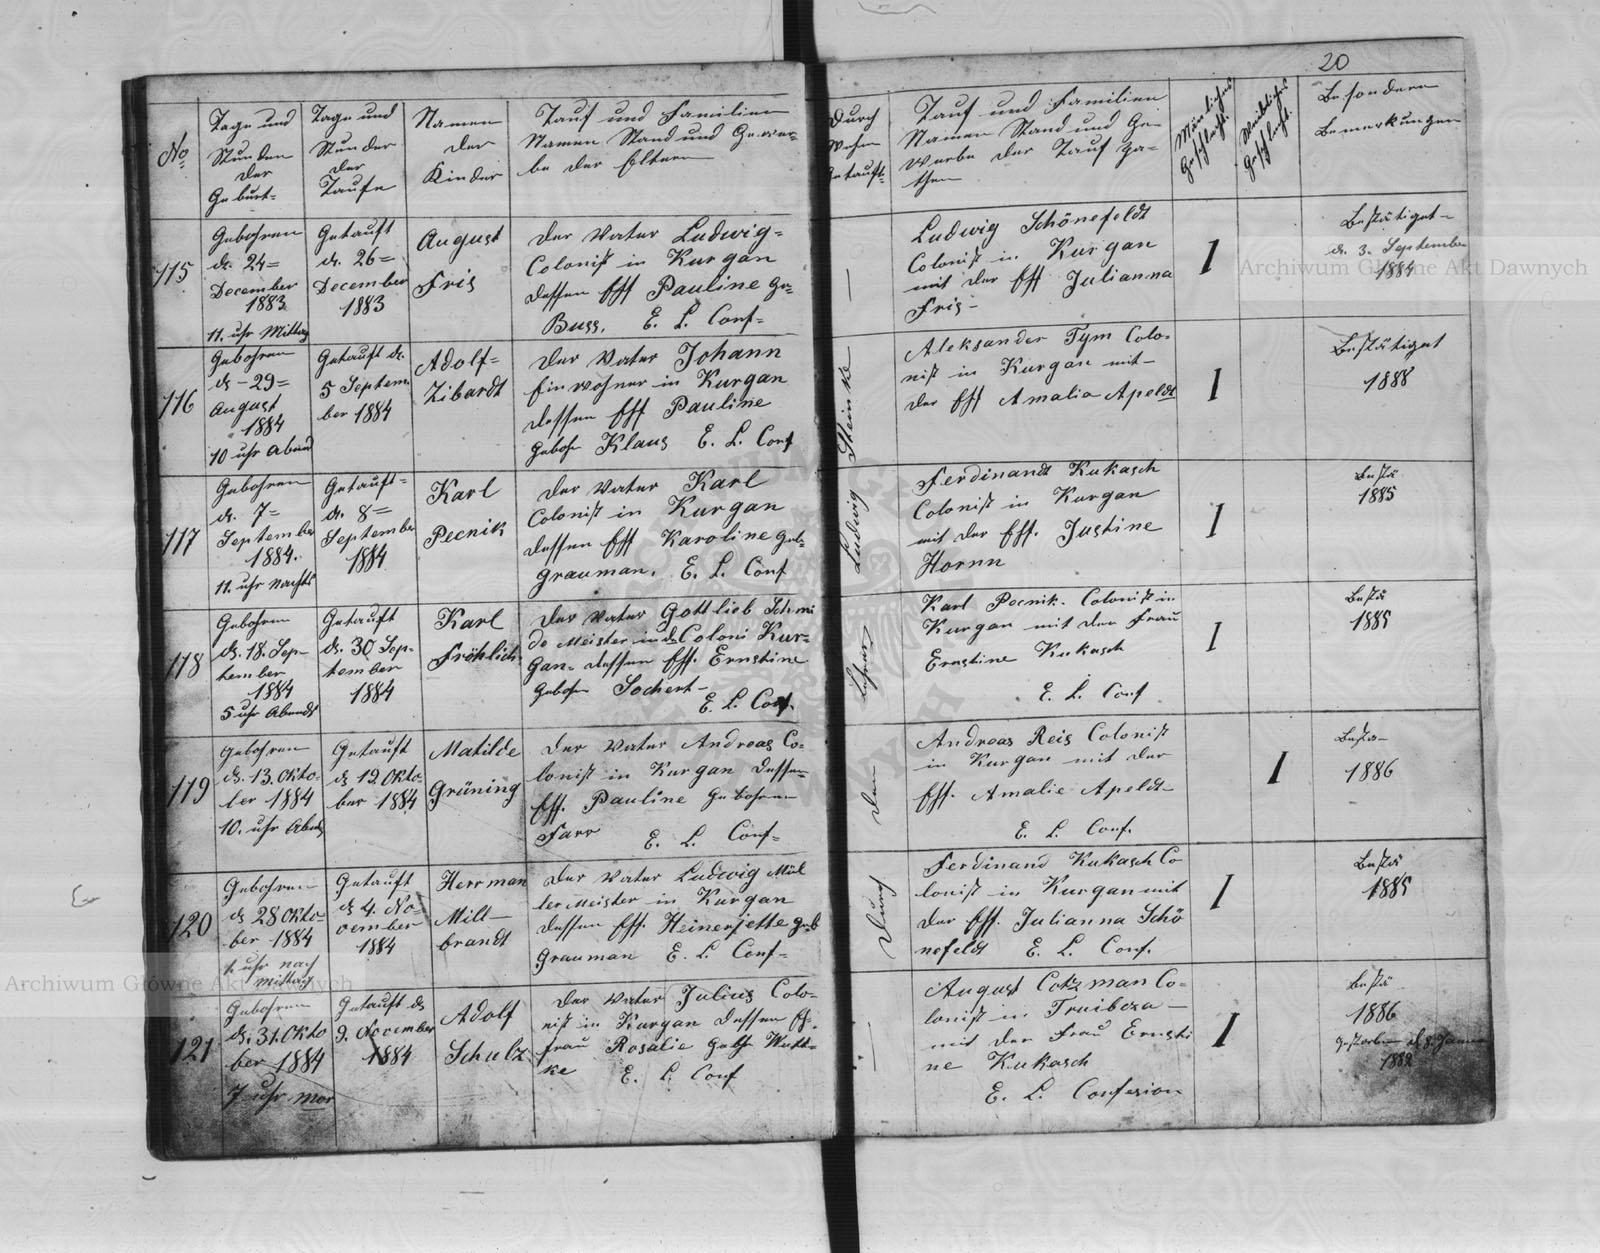 20
No
Tage und
Stunden
der
Geburt-
Tage und
Stunder
der
Taufe
Namen
der
Kinder
Tauf und Familien
Namen Stand und Gewer-
be der Eltern
Durch
Wehm
Getauft-
Tauf und Familien
Namen Stand und Ge-
werbe der Tauf za-
then
Mänliches
Geschlecht.
Weibliches
Geschlecht.
Besondere
Bemerkungen
115
Gebohren
d. 24=
December
1883
11. uhr Mittag
Getauft
d. 26=
December
1883
August
Fris
Der Vater Ludwig=
Colonist in Kurgan
dessen Eff Pauline ge=
Buss. E. L. Conf=
—
Ludwig Schönefeldt
Colonist in Kurgan
mit der Eff Julianna
Fris-
1
Bestätiget-
d. 3. September
1884
116
Gebohren
d - 29=
August
1884
10 uhr Abend
Getauft d.
5 Septem
ber 1884
Adolf=
Zibardt
Der Vater Johann
Einwohner in Kurgan
dessen Eff Pauline
geboh Klaus E. L. Conf
Aleksander Tym Colo-
nist in Kurgan mit-
der Eff Amalia Apeldt
1
Bestätiget
1888
117
Gebohren
d. 7=
September
1884.
11. uhr Nachts
Getauft=
d. 8=
September
1884
Karl
Pecnik
Der Vater Karl
Colonist in Kurgan
dessen Eff Karoline geb=
Grauman. E. L. Conf
Ferdinandt Kukasch
Colonist in Kurgan
mit der Eff. Justine
Hornn
1
Bestä
1885
118
Gebohren
d. 18. Sep-
tember
1884
5 uhr Abends
Getauft
d. 30 Sep-
tember
1884
Karl
Fröhlich
Der Vater Gottlieb Schmi
de Meister in d Coloni Kur-
gan- dessen Eff. Ernstine
geboh Sochert-
E. L. Conf.
Karl Pecnik- Colonist in
Kurgan mit der Frau
Ernstine Kukasch
E. L. Conf
1
Bestä
1885
119
Gebohren
d. 13. Okto-
ber 1884
10. uhr Abend
Getauft
d 19. Okto-
ber 1884
Matilde
Grüning
Der Vater Andreas Co-
lonist in Kurgan dessen
Eff. Pauline gebohren
Farr E. L. Conf=
Andreas Reis Colonist
in Kurgan mit der
Eff. Amalie Apeldt-
E. L. Conf.
1
Bestä-
1886
120
Gebohren
d 28 Okto-
ber 1884
1. uhr nach
Mittag
Getauft
d 4. No-
vember
1884
Herrman
Milt-
brandt
Der Vater Ludwig Mül
ler Meister in Kurgan
dessen Eff. Heinerjette geb
Grauman E. L. Conf-
Durch den Lehrer Ludwig Steinke
Ferdinand Kukasch Co
lonist in Kurgan mit
der Eff. Julianna Schö
nefeldt E. L. Conf.
1
Bestä
1885
121
Gebohren
d. 31. Okto
ber 1884
7 uhr mor
Getauft d
9. November
1884
Adolf
Schulz
Der Vater Julius Colo-
nist in Kurgan dessen Eh-
frau Rosalie geboh Wutt-
ke E. L. Conf
—
August Cotzman Co-
lonist in Truibcza-
mit der Frau Ernsti
ne Kukasch
E. L. Confesion
1
Bestä
1886
gestorben d 8. Januar
1888
Archiwum Główne Akt Dawnych
Archiwum Główne Akt Dawnych